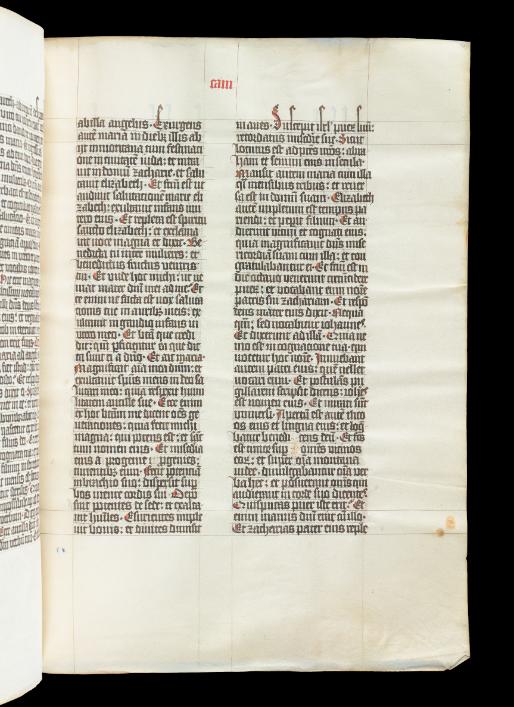 cam
ab illa angelus. Exurgens
aut maria in dieb; illis ab
iit in montana cum festinati
one in ciuitate iuda: et intra
uit in domū zacharie. et salu
tauit elizabeth. Et fcm est ut
audiuit salutatione marie eli
zabeth: exultauit infans in u
tero eius. Et repleta est spiritu
sancto elizabeth: et exclama
uit uoce magna et dixit. Be
nedicta tu inter mulieres: et
benedictus fructus uentris
tui. Et unde hoc michi: ut ue
niat mater dni mei ad me. Et
ce enim ut facta est uox saluta
tionis tue in auribus meis: ex
ultauit in gaudio infans in
utero meo. Et btā que credi
dit: qm pficientur ea que dic
ta sunt ei a dno. Et ait maria.
Magnificat aīa mea dnm: et
exultauit spūs meus in deo sa
lutari meo: quia respexit humi
litatem ancille sue. Ecce enim
ex hoc beatā me dicent oēs ge
nerationes: quia fecit michi
magna: qui potens est: et sāc
tum nomen eius. Et misedia
eius a progenie i pgenies:
timentib; eum. Fecit potentiā
in brachio suo: dispersit sup
bos mente cordis sui. Depo
suit potentes de sede: et exalta
uit hūiles. Esurientes imple
uit bonis: et diuites dimisit
inanes. Suscepit isrl puerū suū:
recordatus misedie sue. Sicut
locutus est ad patres nros: abra
ham et semini eius in secula.
Mansit autem maria cum illa
qsi mensibus tribus: et reuer
sa est in domū suam. Elizabeth
autē impletum est tempus pa
riendi: et peperit filium. Et au
dierunt uicini et cognati eius:
quia magnificauit dns mise
ricordiā suam cum illa: et con
gratulabantur ei. Et fcm est in
die octauo uenerunt circūcidere
puerū: et uocabant eum noīe
patris sui zachariam. Et respo
dens mater eius dixit. Nequa
qm: sed uocabitur iohannes.
Et dixerunt ad illā. Quia ne
mo est in cognatione tua: qui
uocetur hoc noīe. Innuebant
autem patri eius: que uellet
uocari eum. Et postulās pu
gillarem scripsit dicens: iohes
est nomen eius. Et mirati sūt
uniuersi. Apertū est autē ilico
os eius et lingua eius: et loq
batur benedicens deū. Et fcs
est timor supr oms uicinos
eor: et supr oīa montana
iudee diuulgabantur oīa uer
ba hec: et posuerunt oms qui
audierant in corde suo dicentes.
Quis putas puer iste erit. Et
enim manus dni erat cū illo.
Et zacharias pater eius reple